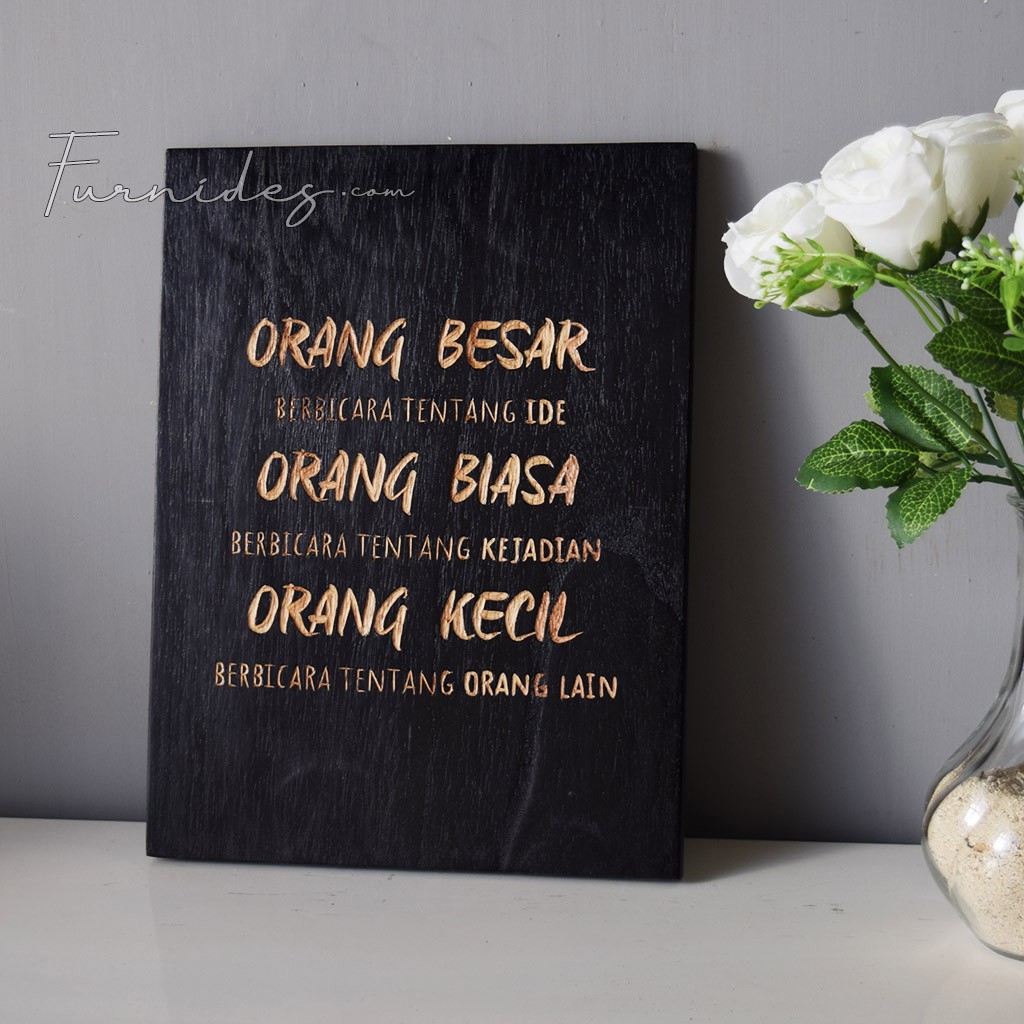 Furnides.com
ORANG BESAR
BERBICARA TENTANG IDE
ORANG BIASA
BERBICARA TENTANG KEJADIAN
ORANG KECIL
BERBICARA TENTANG ORANG LAIN